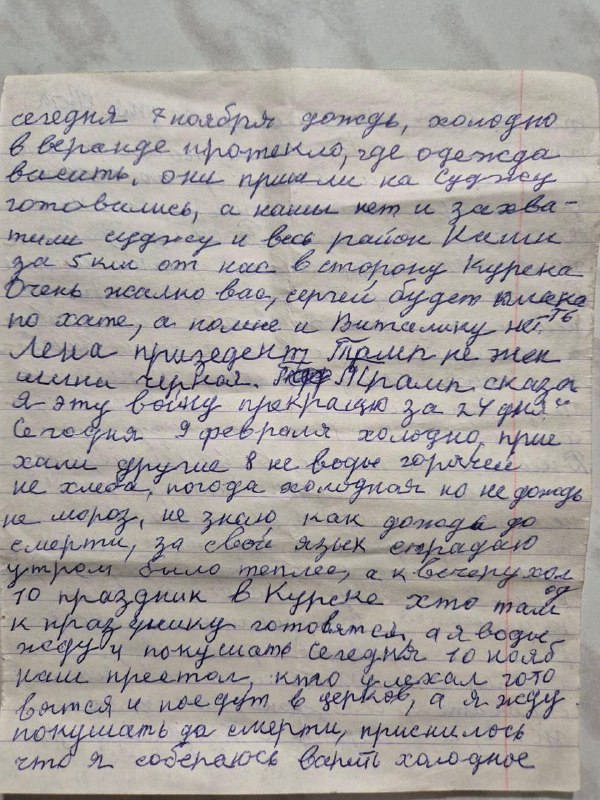 сегодня 7 ноября дождь, холодно
в веранде протекло, где одежда
васить, они пришли на Суджу
готовились, а нашы нет и захва-
тили суджу и весь район
за 5 км от нас в сторону Курска
Очень жалко вас, сергей будет плака
ть
по хате, а по мне и Виталику нет.
Лена призедент Трамп не жен
шина черная. Трамп сказал
Я эту войну прекращю за 24 дня"
Сегодня 9 февраля холодно, прие
хали другие 8 не воды горячей
не хлеба, погода холодная но не дождь
не мороз, не знаю как дожда до
смерти, за свой язык страдаю
утром было теплее, а к вечеру хол
од
10 праздник в Курске хто там
к празднику готовятся, а я воды
жду и покушать Сегодня 10 нояб
наш престол, кто уехал гото
вытся и поедут в церков, а я жду
покушать до смерти, приснилось
что я собераюсь варить холодное